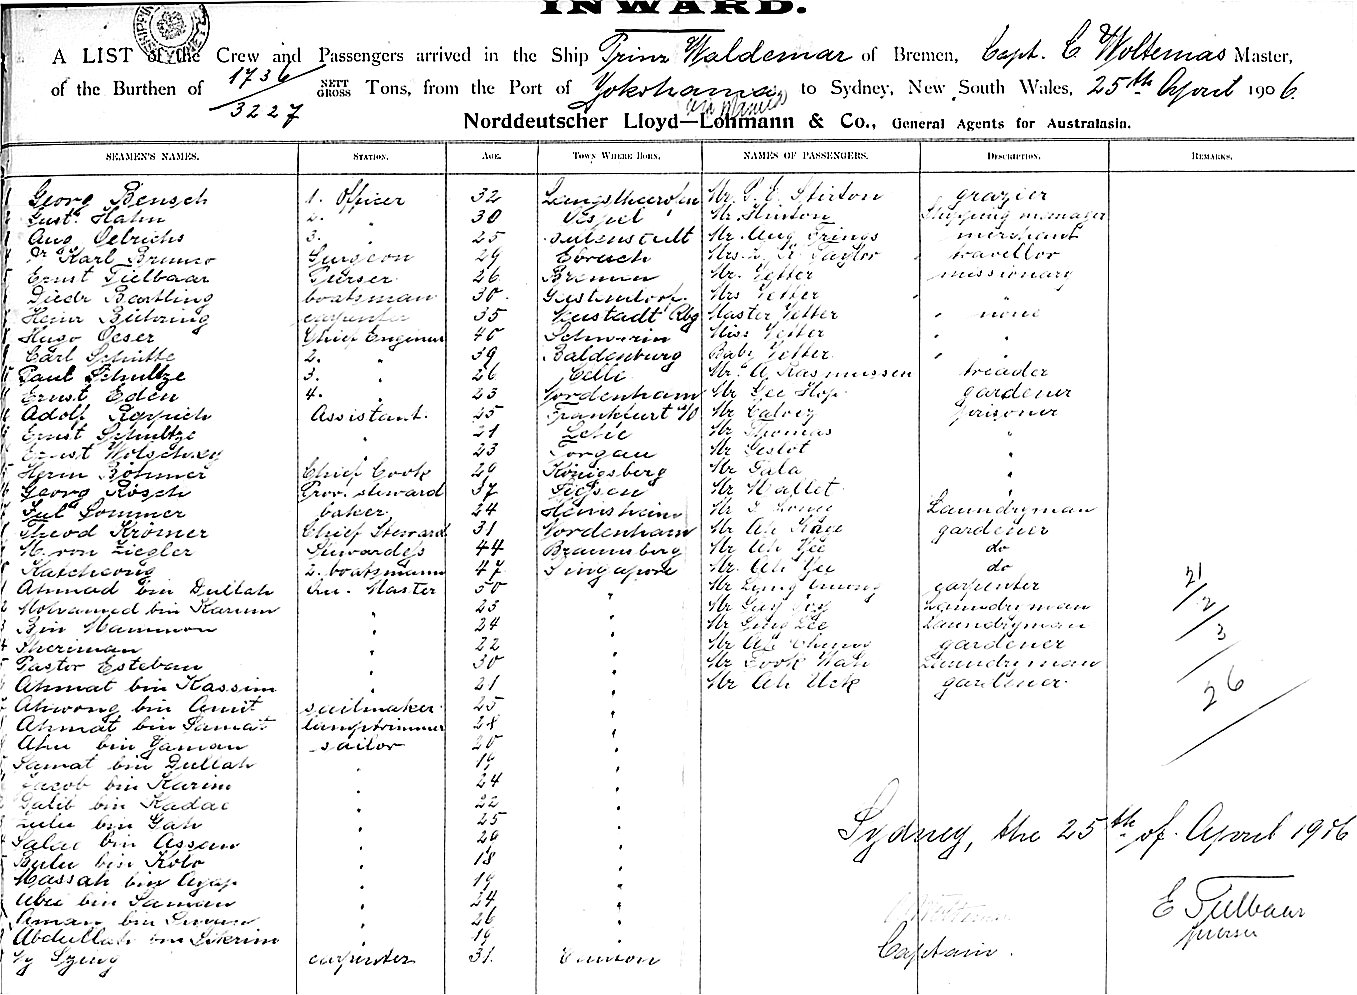 INWARD.
A LIST of the Crew and Passengers arrived in the Ship Prinz Waldemar of Bremen, Capt. C Woltemas Master,
of the Burthen of 1736/3227 NETT GROSS Tons, from the Port of Yokohama to Sydney, New South Wales, 25th April 1906.
Norddeutscher Lloyd—Lohmann & Co., General Agents for Australasia.
SEAMEN'S NAMES. STATION. AGE. TOWN WHERE BORN. NAMES OF PASSENGERS. DESCRIPTION. REMARKS.
Georg Bensch 1. Officer 32 Mr. P. E. Stirton grazier
Gust. Hahn 2. " 30 Mr. Hinton Shipping manager
Aug Oelrichs 3. " 25 Mr. Aug Frings merchant
Dr Karl Brunno Surgeon 29 Ebrach Mrs. Taylor travellor
Ernst Tülbaar Purser 26 Bremen Mr. Vetter missionary
Diedr Bartling boatsman 30 Mrs Vetter "
Heinr Bühring carpenter 35 Neustadt Rbg Master Vetter " none
Hugo Oeser Chief Engineer 40 Schwerin Miss Vetter " "
Carl Schütte 2. " 39 Baldenburg Baby Vetter " "
Paul Schultze 3. " 26 Celle Mr. A Rasmussen treader
Ernst Eden 4. " 23 Nordenham Mr Lee Hop gardener
Adolf Assistant. 25 Frankfurt a/O Mr Calvey prisoner
Ernst Schultze " 21 Lehe Mr Thomas "
Ernst Wolschky " 23 Torgau Mr Geslot "
Herm Böhmer Chief Cook 29 Königsberg Mr Gala "
Georg Rösch Prov. steward 37 Giessen Mr Mallet "
Jul Sommer baker 24 Heinsheim Mr Laundryman
Theod Krömer Chief Steward 31 Nordenham Mr Ah gardener
M. von Ziegler Stewardess 44 Braunsberg Mr Ah Yee do
Katcheong 2. boatsmann 47 Singapore Mr. Ah do
Ahmad bin Dullah Qu. Master 50 " Mr carpenter
Mohamed bin Karim " 25 " Mr Laundryman
Bin Mammon " 24 " Mr Lee Laundryman
Sheriman " 22 " Mr Ah Chung gardener
Pastor Esteban " 30 " Mr Took Wah Laundryman
Ahmat bin Kassim " 21 " Mr Ah Uck gardener.
Ahwong bin Amit sailmaker 25 "
Ahmat bin Samat lamptrimmer 28 "
Ahu bin Yaman sailor 20 "
Samat bin Dullah " 19 "
Jacob bin Karim " 24 "
Galib bin Kadar " 22 "
Lulu bin Gah " 25 "
Salai bin Assan " 29 "
Bulu bin Kolo " 18 "
Massah bin " 19 "
Abu bin Saman " 24 "
Aman bin " 26 "
Abdullah bin " 19 "
carpenter 31. Canton
21/2/3
26
Sydney, the 25th of April 1906
Captain.
E Tülbaar
purser